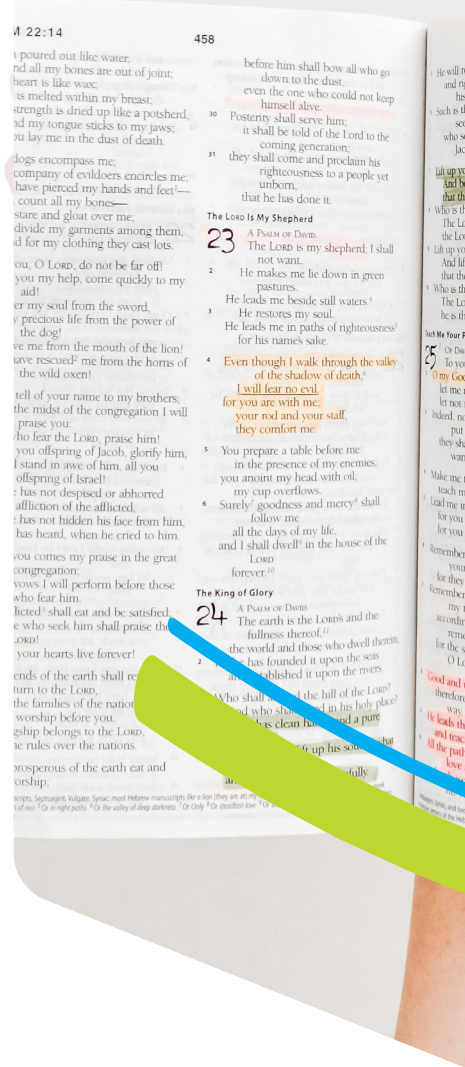 M 22:14
458
poured out like water,
nd all my bones are out of joint;
heart is like wax;
is melted within my breast;
strength is dried up like a potsherd,
nd my tongue sticks to my jaws;
ou lay me in the dust of death.
dogs encompass me;
company of evildoers encircles me;
have pierced my hands and feet¹—
count all my bones—
stare and gloat over me;
divide my garments among them,
d for my clothing they cast lots.
ou, O LORD, do not be far off!
you my help, come quickly to my
aid!
er my soul from the sword,
y precious life from the power of
the dog!
ve me from the mouth of the lion!
ave rescued² me from the horns of
the wild oxen!
tell of your name to my brothers;
the midst of the congregation I will
praise you:
ho fear the LORD, praise him!
you offspring of Jacob, glorify him,
d stand in awe of him, all you
offspring of Israel!
has not despised or abhorred
affliction of the afflicted,
has not hidden his face from him,
has heard, when he cried to him.
you comes my praise in the great
congregation;
vows I will perform before those
who fear him.
licted³ shall eat and be satisfied;
e who seek him shall praise the
LORD!
your hearts live forever!
ends of the earth shall
turn to the LORD,
the families of the
worship before you.
gship belongs to the LORD,
he rules over the nations.
prosperous of the earth eat and
orship;
before him shall bow all who go
down to the dust,
even the one who could not keep
himself alive.
30 Posterity shall serve him;
it shall be told of the Lord to the
coming generation;
31 they shall come and proclaim his
righteousness to a people yet
unborn,
that he has done it.
The LORD Is My Shepherd
23 A PSALM OF DAVID.
The LORD is my shepherd; I shall
not want.
2 He makes me lie down in green
pastures.
He leads me beside still waters.⁴
3 He restores my soul.
He leads me in paths of righteousness⁵
for his name's sake.
4 Even though I walk through the valley
of the shadow of death,⁶
I will fear no evil,
for you are with me;
your rod and your staff,
they comfort me.
5 You prepare a table before me
in the presence of my enemies;
you anoint my head with oil;
my cup overflows.
6 Surely⁷ goodness and mercy⁸ shall
follow me
all the days of my life,
and I shall dwell⁹ in the house of the
LORD
forever.¹⁰
The King of Glory
24 A PSALM OF DAVID.
The earth is the LORD's and the
fullness thereof,¹¹
the world and those who dwell therein,
2 has founded it upon the seas
established it upon the rivers.
Who shall the hill of the LORD?
who in his holy place?
has clean and a pure
up his what
He will
Such is
who
Lift up
And
that
Who is
The
the
Lift up
And lif
that the
Who is th
The
he is th
Teach Me Your
25 OF
To you
O my God
let me
let not
Indeed,
put
they
wan
Make me
teach m
Lead me in
for you
for you
Remember
your
for they
Remember
my
accordin
for the s
O L
Good and
therefor
way
He leads th
and teac
All the path
love